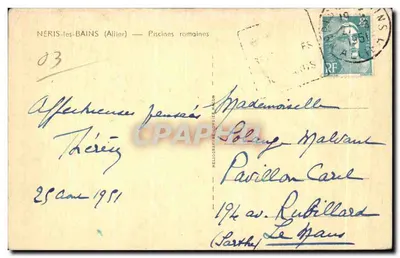 NERIS-les-BAINS (Allier) — Piscines romaines
03
Affectueuses pensées
25 Aout 1951
Mademoiselle
Solange
Pavillon Carel
194 av. Rubillard
Le Mans
(Sarthe)
RF
CPARAMA